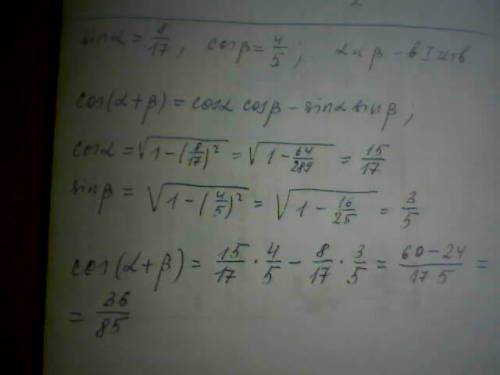 sinα = 8/17, cosβ = 4/5; α и β - в I четв
cos(α+β) = cosα cosβ - sinα sinβ;
cosα = √(1-(8/17)²) = √(1-64/289) = 15/17
sinβ = √(1-(4/5)²) = √(1-16/25) = 3/5
cos(α+β) = 15/17 · 4/5 - 8/17 · 3/5 = (60-24)/(17·5) =
= 36/85